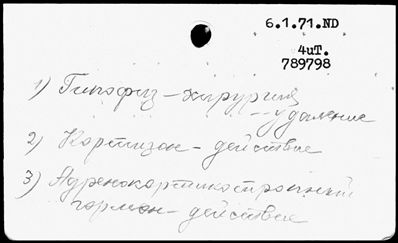 6.1.71.ND
4uT.
789798
1) Гипофиз - хирургия
- удаление
2) Кортизон - действие
3) Адренокортикотропный
гормон - действие